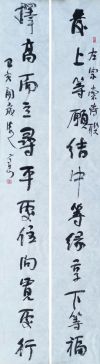 發上等願結中等緣享下等福
左宗棠詩聯
擇高而立尋平處住向寬處行